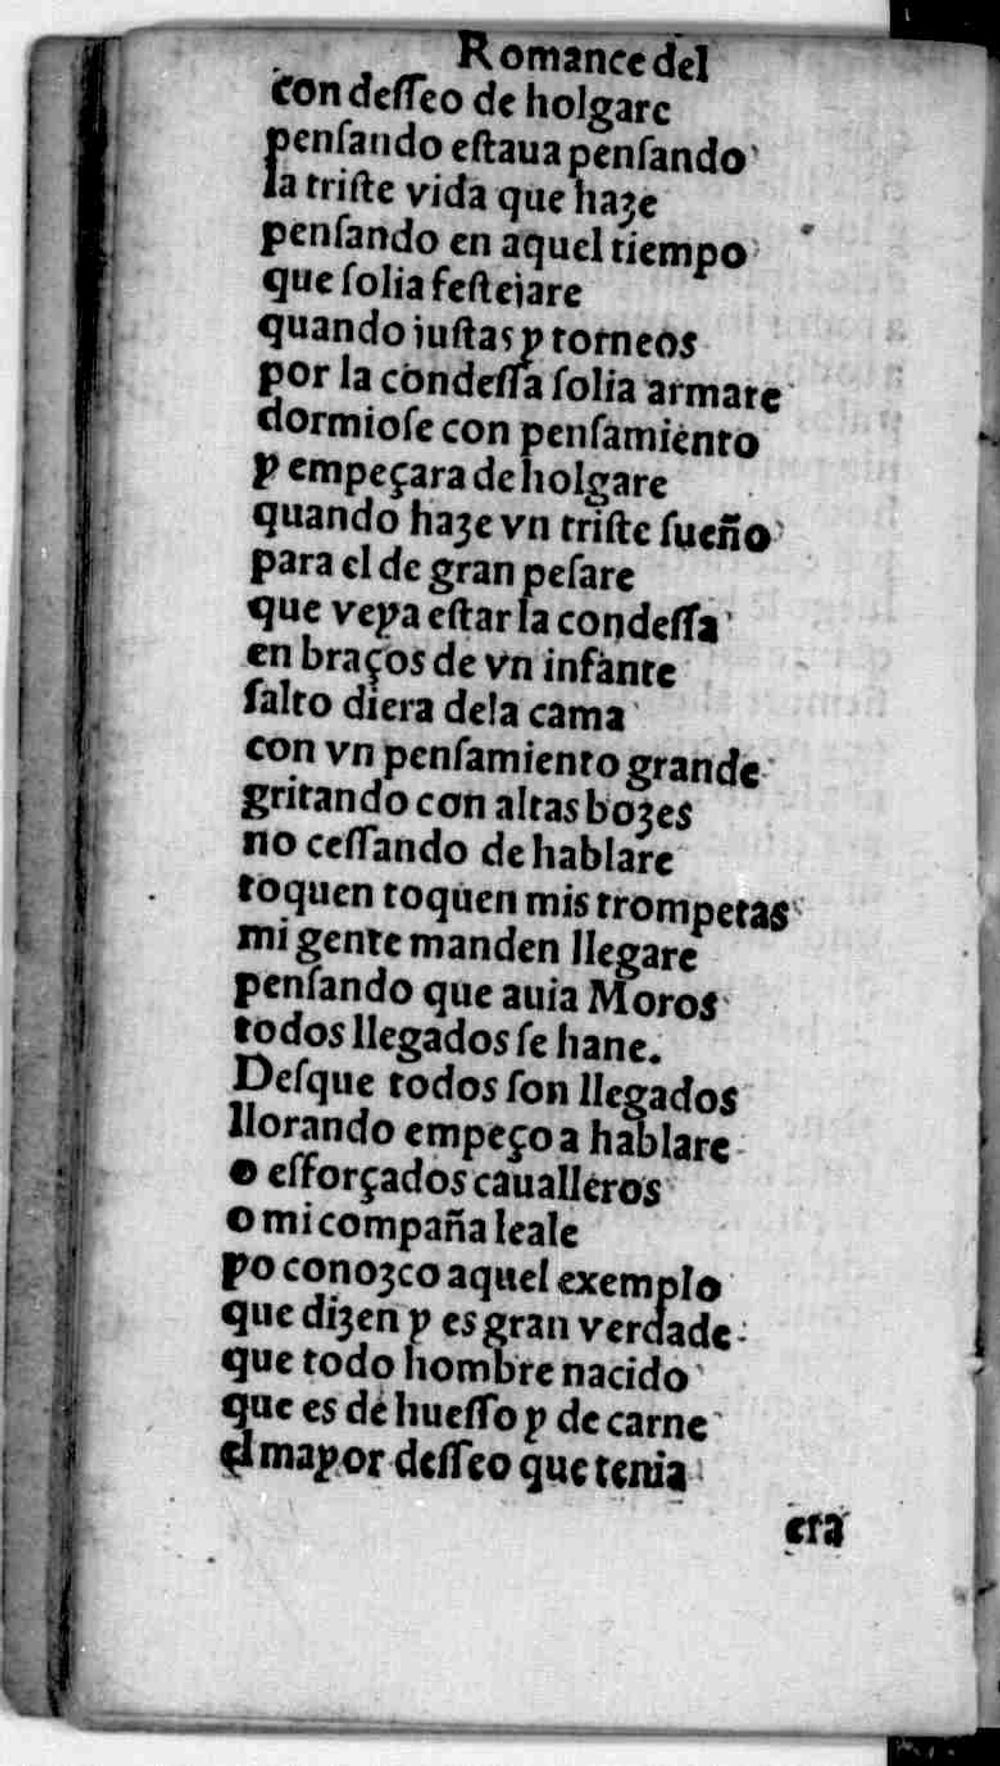 Romance del
con deſſeo de holgare
penſando eſtaua penſando
la triſte vida que haze
penſando en aquel tiempo
que ſolia feſteiare
quando iuſtas y torneos
por la condeſſa ſolia armare
dormioſe con penſamiento
y empeçara de holgare
quando haze vn triſte ſueño
para el de gran peſare
que veya eſtar la condeſſa
en braços de vn infante
ſalto diera dela cama
con vn penſamiento grande
gritando con altas bozes
no ceſſando de hablare
toquen toquen mis trompetas
mi gente manden llegare
penſando que auia Moros
todos llegados ſe hane.
Deſque todos ſon llegados
llorando empeço a hablare
o eſforçados caualleros
o mi compaña leale
yo conozco aquel exemplo
que dizen y es gran verdade
que todo hombre nacido
que es de hueſſo y de carne
el mayor deſſeo que tenia
era